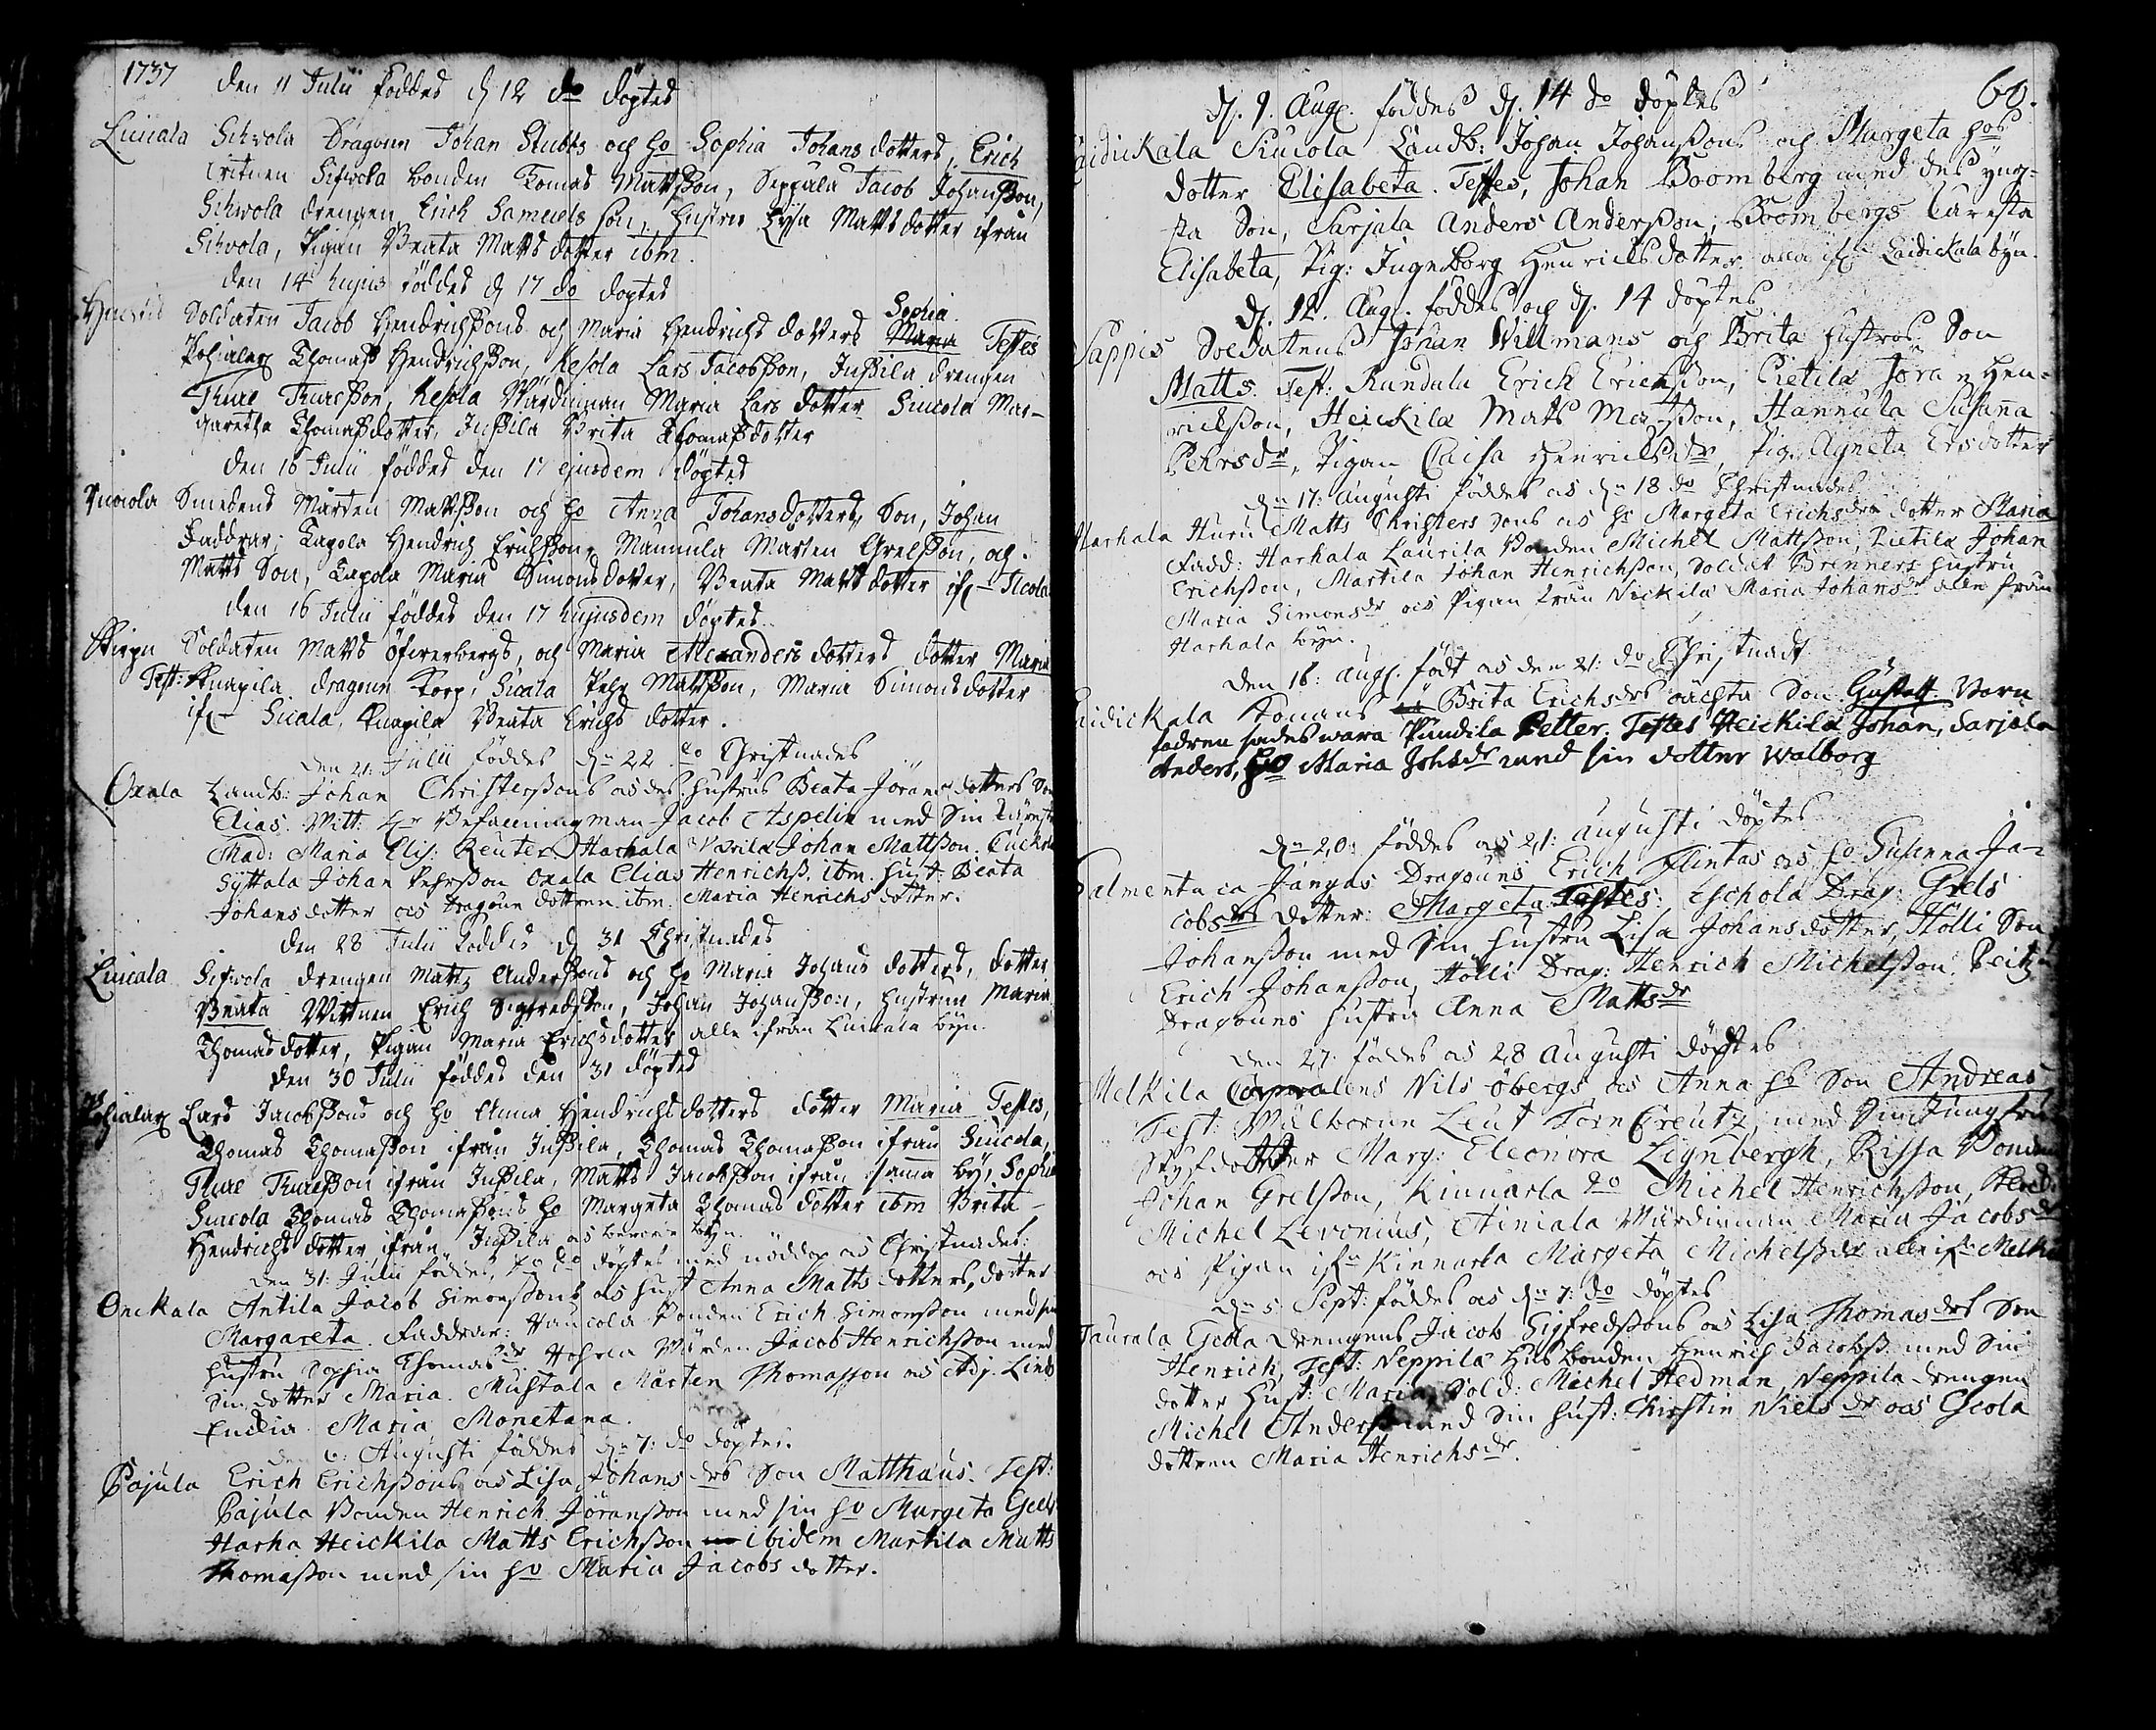 1737
Den 11 Julii föddes d 12 do döptes
Luicala Sihvola Dragoun Johan Stubbs och ho Sophia Johansdotters, Erich
bonden Tomas Mattsson, Seppälä Jacob Johansson,
Sihvola drengen Erich Samuels son, hustru Lysa Mattsdotter ifrån
Sihvola, Pigan Beata Matts dotter ibm.
den 14 hujus föddes d 17 do döptes
Soldaten Jacob Hendrichssons och Maria Hendrichs dotters Maria Sophia Testes
Pohialax Thomas Hendrichsson, Kesola Lars Jacobsson, Jussila drengen
Thure Thuresson, Kesola Wärdinnan Maria Lars dotter Siucola Mar-
garetha Thomasdotter, Jussila Brita Thomasdotter
Den 16 Julii föddes den 17 ejusdem döptes
Smedens Mårten Mattsson och ho Anna Johansdotters, Son, Johan
Faddrar: Tapola Hendrich Erichsson, Mannula Mårten Grelsson, och
Matts Son, Tapola Maria Simonsdotter, Beata Matts dotter if
den 16 Julii föddes den 17 hujusdem döptes
Skirpu Soldaten Matts Öfwerbergs, och Maria Alexanders dotters dotter Maria
Test: Knapila dragoun Korp, Sicala Pehr Mattsson, Maria Simonsdotter
if Sicala, Knapila Beata Erichs dotter.
den 21: Julii föddes dn 22 do Christnades
Oxala Landb: Johan Christerssons ocs des hustrus Beata Jörans dotters Son
Elias. Witt: Hr Befallningzman Jacob Aspelin med Sin
Mad: Maria Elis: Reuter. Harhala Johan Mattsson.
Syttala Johan Pehrsson Oxala Elias Henrichss. ibm. hust: Beata
Johans dotter ocs Dragoun dottren ibm. Maria Henrichs dotter.
den 28 Julii föddes d 31 Christnades
Luicala Sihvola drengen Mattz Anderssons och ho Maria Johans dotters, dotter
Beata Wittnen Erich Sigfredsson, Johan Johansson, hustrun Maria
Thomasdotter, Pigan Maria Erichsdotter alle ifrån Luicala byn.
den 30 Julii föddes den 31 döptes
Pohialax Lars Jacobssons och ho Anna Hendrichsdotters dotter Maria Testes,
Thomas Thomasson ifrån Jussila, Thomas Thomasson ifrån Siucola,
Thure Thuresson ifrån Jussila, Matts Jacobsson ifrån samma by, Sophia
Siucola Thomas Thomassons ho Margeta Thomas dotter ibm Brita
Hendrichs dotter ifrån Jussila
den 31: Julii föddes, do döptes med nöddop ocs Christnades:
Onckala Antila Jacob Simonssons ocs hust Anna Matts dotters, dotter
Margareta. Faddrar: Vancola Bonden Erich Simonsson med sin
hustru Sophia Thomasdr Wärden Jacob Henrichsson med
Sin dotter Maria. Mustala Mårten Thomasson ocs Adj.
Maria Monetana.
den 6: Augusti föddes dn 7: do döptes.
Pajula Erich Erichssons ocs Lisa Johans drs Son Matthæus. Test:
Pajula Bonden Henrich Jöransson med sin ho Margeta
Harha Heickila Matts Erichsson ibidem Martila Matts
Thomasson med sin ho Maria Jacobs dotter.
60.
D. 9. Aug. föddes d. 14 do döptes
Laidickala Siucola Landb: Johan Johanssons och Margeta hos
dotter Elisabeta. Testes, Johan Boomberg med des yng-
sta Son, Sarjala Anders Andersson, Boombergs käresta
Elisabeta, Pig: Ingeborg Henrichsdotter alla ifr Laidickala byn.
D. 12. Aug. föddes och d. 14 döptes
Sappis Soldatens Johan Willmans och Brita hustros Son
Matts. Test: Rundula Erick Ericksson, Pietila Jöran Hen-
ricksson, Heickila Mats Matsson, Hannula Susanna
Pehrsdr, Pigan Caisa Henricksdr, Pig. Agneta Ersdotter
dn 17: Augusti föddes ocs dn 18 do Christnades
Harhala Huru Matts Christers sons ocs ho Margeta Erichsdrs dotter Maria
Fadd: Harhala Laurila Bonden Michel Mattsson, Pietila Johan
Erichsson, Martila Johan Henrichsson, Soldat Brenners hustru
Maria Simonsdr ocs Pigan från Nickila Maria Johansdr alla från
Harhala byn.
den 16: Aug. födt ocs den 21: do Christnadt
Laidickala Konans Brita Erichsdrs oächta Son Gustaff. Barn
fadren sades wara Pundila Petter. Testes Heickila Johan, Sarjala
Anders, ho Maria Johsdr med sin dotter Walborg
dn 20: föddes ocs 21: Augusti döptes
Salmentaca Jangas Dragouns Erich Flintas ocs ho Susanna Ja-
cobsdrs dotter: Margeta Testes: Eschola Drag: Grels
Johansson med Sin hustru Lisa Johansdotter, Hölli Son
Erich Johansson, Hölli Drag: Henrich Michelsson.
Dragouns hustru Anna Mattsdr
den 27: föddes ocs 28 Augusti döptes
Melkila Corpralens Nils Öbergs ocs Anna hs Son Andreas
Test: Wälborne Leut TornCreutz, med Sin Jungfru
Styfdotter Marg: Eleonora Leijnbergh, Rissa Bonden
Johan Grelsson, Kinnarla do Michel Henrichsson,
Michel Levonius, Äiniala Wärdinnan Maria Jacobsdr
ocs Pigan ifr Kinnarla Margeta Michelsdr alle ifr Melkila
dn 5: Sept: föddes ocs dn 7: do döptes
Taurala Escola drengens Jacob Sigfredssons ocs Lisa Thomasdrs Son
Henrich, Test: Neppila husbonden Henrich Jacobss. med Sin
dotter Hust: Maria, Sold: Michel Hedman, Neppila drengen
Michel Anderss med Sin hust: Christin Nielsdr ocs Escola
dottren Maria Henrichsdr.